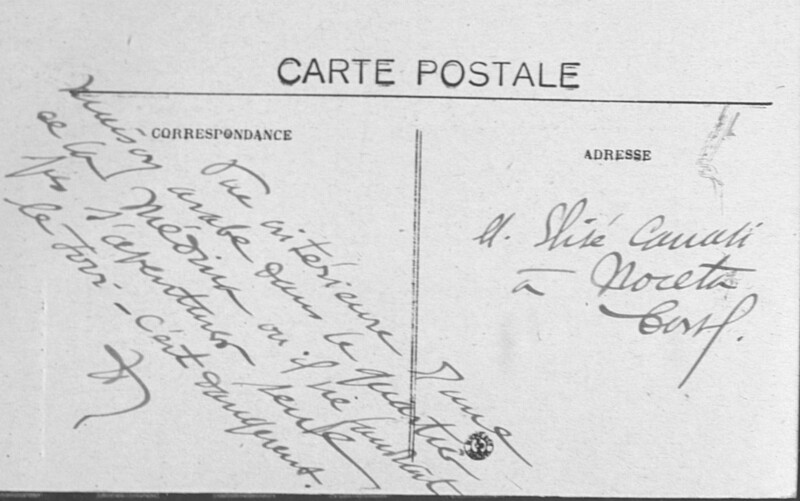 CARTE POSTALE
CORRESPONDANCE
ADRESSE
Vue intérieure d'une
maison arabe dans le quartier
de la Médina où il ne faudrait
pas s'aventurer seul
le soir - c'est dangereux.
M. Élisé
à Noceta
Corse.